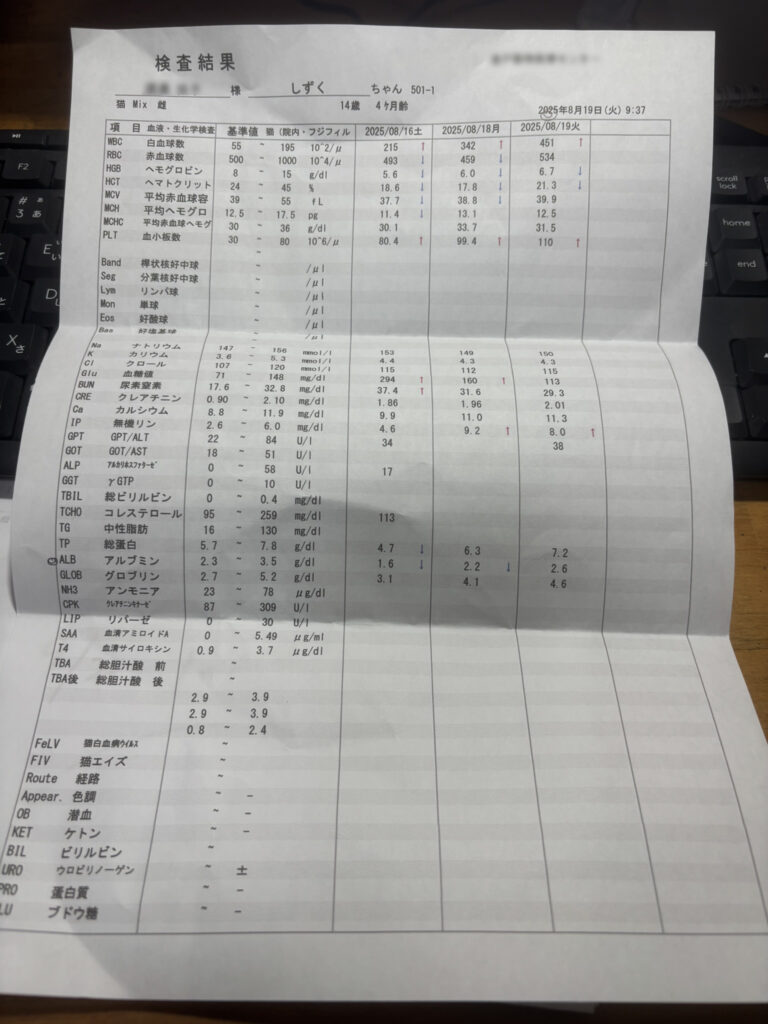 検査結果
様 しずく ちゃん 501-1
猫 Mix 雌 14歳 4ヶ月齢
2025年8月19日(火) 9:37
項 目 血液・生化学検査 基準値 猫(院内・フジフィル 2025/08/16土 2025/08/18月 2025/08/19火
WBC 白血球数 55 ~ 195 10^2/μ 215 ↑ 342 ↑ 451 ↑
RBC 赤血球数 500 ~ 1000 10^4/μ 493 ↓ 459 ↓ 534
HGB ヘモグロビン 8 ~ 15 g/dl 5.6 ↓ 6.0 ↓ 6.7 ↓
HCT ヘマトクリット 24 ~ 45 % 18.6 ↓ 17.8 ↓ 21.3 ↓
MCV 平均赤血球容 39 ~ 55 fL 37.7 ↓ 38.8 ↓ 39.9
MCH 平均ヘモグロ 12.5 ~ 17.5 pg 11.4 ↓ 13.1 12.5
MCHC 平均赤血球ヘモグ 30 ~ 36 g/dl 30.1 33.7 31.5
PLT 血小板数 30 ~ 80 10^6/μ 80.4 ↑ 99.4 ↑ 110 ↑
~
Band 桿状核好中球 ~ /μl
Seg 分葉核好中球 ~ /μl
Lym リンパ球 ~ /μl
Mon 単球 ~ /μl
Eos 好酸球 ~ /μl
Bas 好塩基球 ~ /μl
Na ナトリウム 147 ~ 156 mmol/l 153 149 150
K カリウム 3.6 ~ 5.3 mmol/l 4.4 4.3 4.3
Cl クロール 107 ~ 120 mmol/l 115 112 115
Glu 血糖値 71 ~ 148 mg/dl 294 ↑ 160 ↑ 113
BUN 尿素窒素 17.6 ~ 32.8 mg/dl 37.4 ↑ 31.6 29.3
CRE クレアチニン 0.90 ~ 2.10 mg/dl 1.86 1.96 2.01
Ca カルシウム 8.8 ~ 11.9 mg/dl 9.9 11.0 11.3
IP 無機リン 2.6 ~ 6.0 mg/dl 4.6 9.2 ↑ 8.0 ↑
GPT GPT/ALT 22 ~ 84 U/l 34 38
GOT GOT/AST 18 ~ 51 U/l
ALP アルカリホスファターゼ 0 ~ 58 U/l 17
GGT γGTP 0 ~ 10 U/l
TBIL 総ビリルビン 0 ~ 0.4 mg/dl
TCHO コレステロール 95 ~ 259 mg/dl 113
TG 中性脂肪 16 ~ 130 mg/dl
TP 総蛋白 5.7 ~ 7.8 g/dl 4.7 ↓ 6.3 7.2
ALB アルブミン 2.3 ~ 3.5 g/dl 1.6 ↓ 2.2 ↓ 2.6
GLOB グロブリン 2.7 ~ 5.2 g/dl 3.1 4.1 4.6
NH3 アンモニア 23 ~ 78 μg/dl
CPK クレアチニンキナーゼ 87 ~ 309 U/l
LIP リパーゼ 0 ~ 30 U/l
SAA 血清アミロイドA 0 ~ 5.49 μg/ml
T4 血清サイロキシン 0.9 ~ 3.7 μg/dl
TBA 総胆汁酸 前 ~
TBA後 総胆汁酸 後 ~
2.9 ~ 3.9
2.9 ~ 3.9
0.8 ~ 2.4
FeLV 猫白血病ウイルス ~
FIV 猫エイズ ~
Route 経路 ~
Appear. 色調 ~ -
OB 潜血 ~ -
KET ケトン ~ -
BIL ビリルビン ~
URO ウロビリノーゲン ~ ±
PRO 蛋白質 ~ -
LU ブドウ糖 ~ -
F2
#
3
あ
E
い
X
さ
scroll
lock
home
end